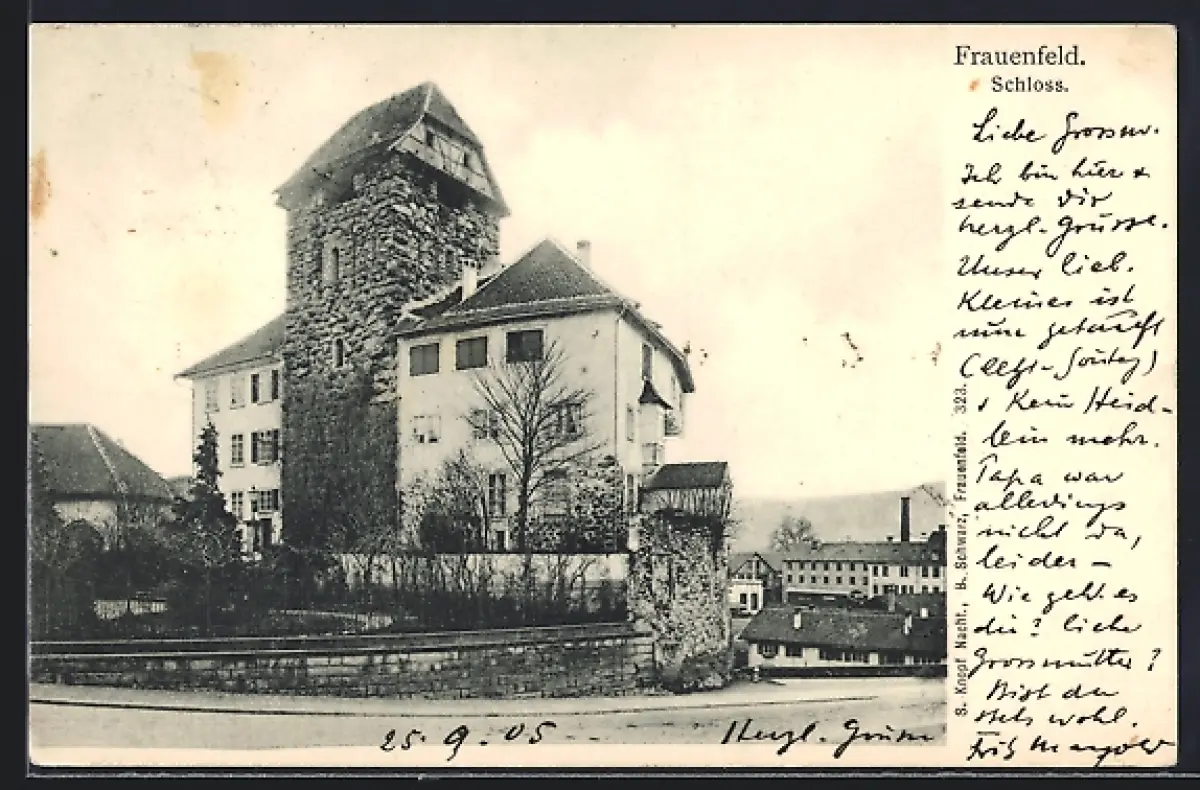 Frauenfeld.
Schloss.
Liebe Grossm.
Ich bin hier &
sende dir
herzl. Grüsse.
Unser lieb.
Kleines ist
nun getauft
& Kein Heid-
lein mehr.
Papa war
allerdings
nicht da,
leider –
Wie geht es
dir? liebe
Grossmutter?
Bist du
stets wohl.
Fritz
25. 9. 05
Herzl. Grüsse
S. Knopf Nachf., B. Schwarz, Frauenfeld. 323.